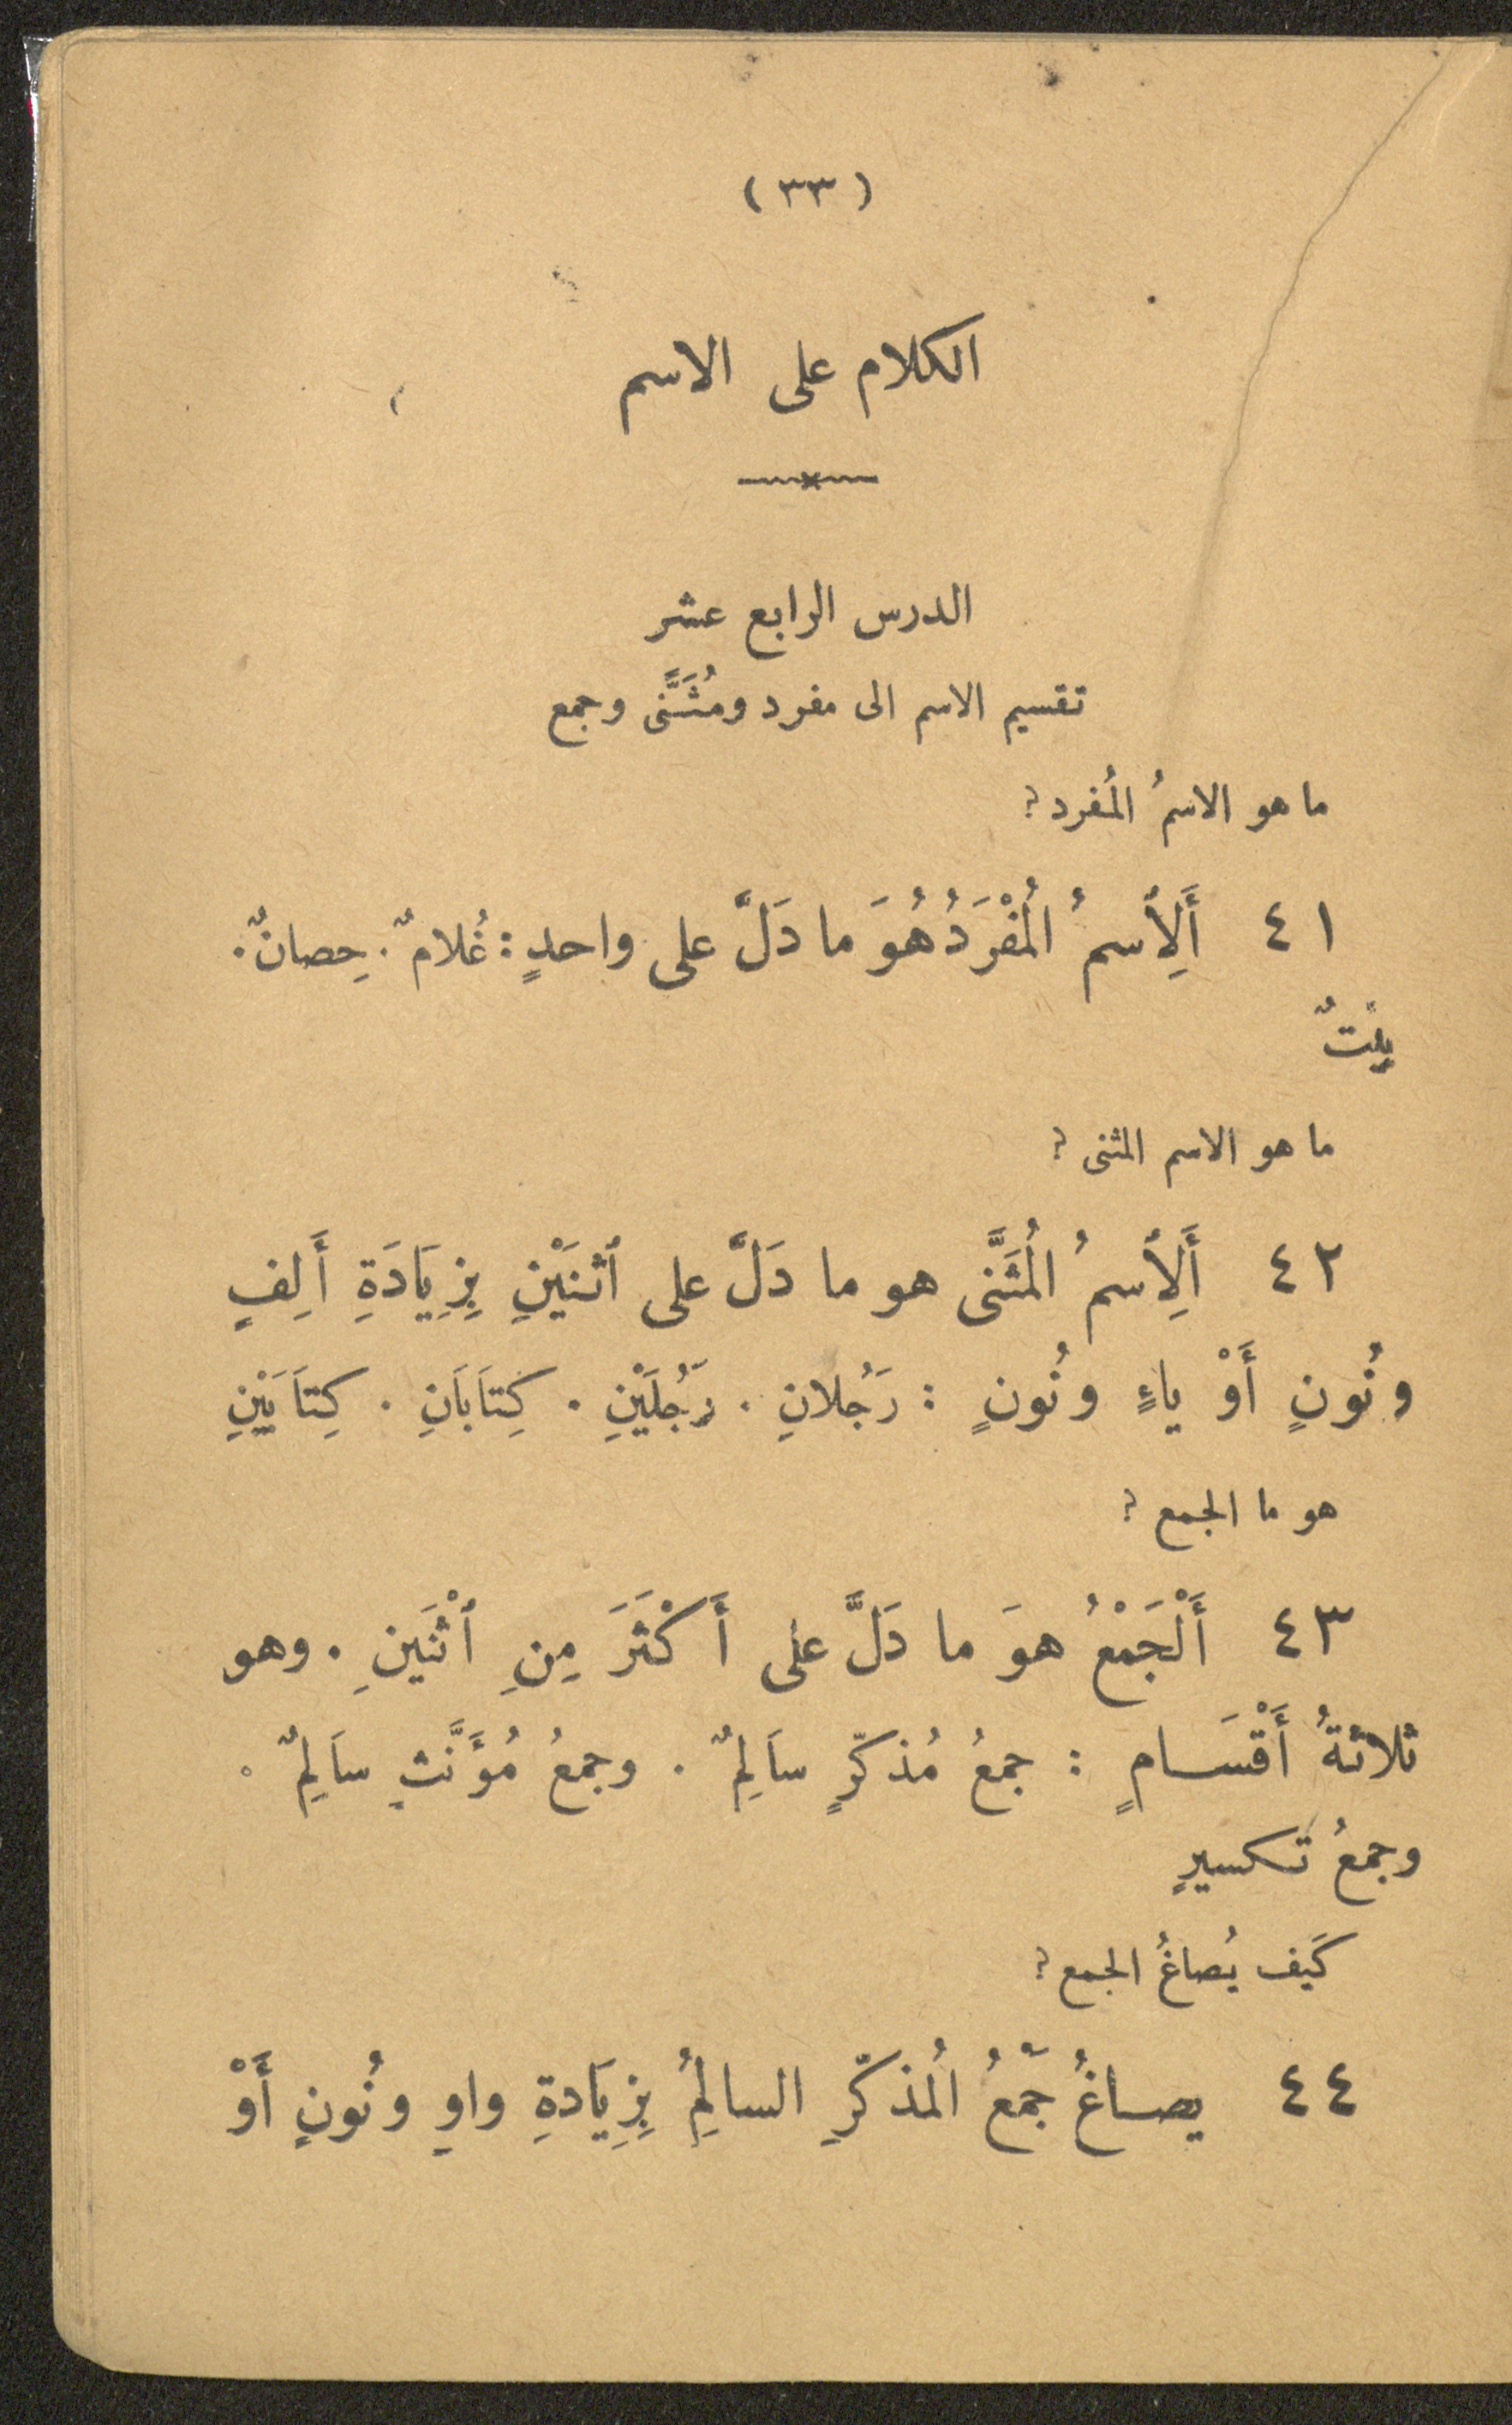 ( ٣٣ )
الكلام على الاسم
الدرس الرابع عشر
تقسيم الاسم الى مفرد ومُثَنًّى وجمع
ما هو الاسمُ المُفرد؟
٤١ أَلِاْسمُ المُفْرَدُ هُوَ ما دَلَّ على واحدٍ : غُلامٌ . حِصانٌ .
بِنْتٌ
ما هو الاسم المثنى ؟
٤٢ أَلِاْسمُ المُثَنَّى هو ما دَلَّ على ٱثنَيْنِ بِزِيَادَةِ أَلِفٍ
ونُونٍ أَوْ ياءٍ ونُونٍ : رَجُلانِ . رَجُلَيْنِ . كِتَابَانِ . كِتَابَيْنِ
هو ما الجمع ؟
٤٣ أَلْجَمْعُ هوَ ما دَلَّ على أَكْثَرَ مِنِ ٱثْنَينِ . وهو
ثلاثةُ أَقْسَامٍ : جمعُ مُذكّرٍ سَالِمٌ . وجمعُ مُؤَنَّثٍ سَالِمٌ .
وجمعُ تكسيرٍ
كَيف يُصاغُ الجمع ؟
٤٤ يصاغُ جَّمعُ المُذكّرِ السالِمُ بِزِيَادةِ واوٍ ونُونٍ أَوْ